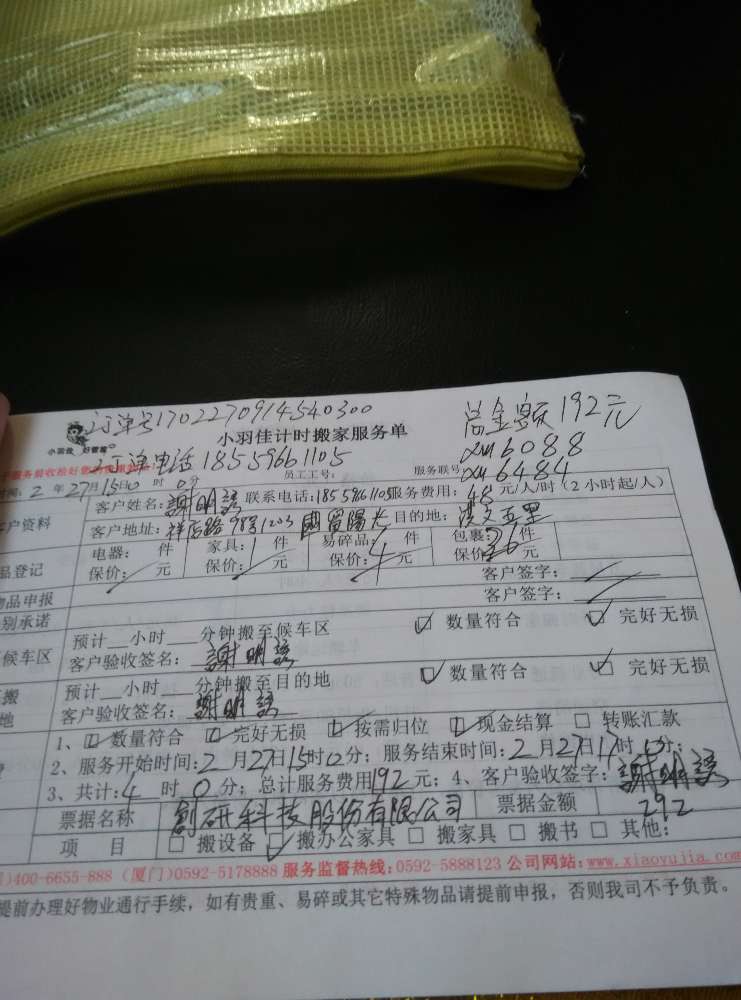 订单号1702270914540300 总金额192元
小羽佳 好管家 小羽佳计时搬家服务单 xm6088
订单电话18559661105
员工工号: 服务联号 xm6484
时间: 2 年 27月15日0 时 0分
客户姓名: 謝明 联系电话: 18559661105服务费用: 48 元/人/时 (2 小时起/人)
客户资料 客户地址: 祥店路98号1203 國貿陽光 目的地: 五里
电器: 件 家具: 1 件 易碎品: 件 包裹: 26 件
品登记 保价: 元 保价: 元 保价: 4 元 保价: 元
物品申报 客户签字:
别承诺 客户签字:
预计 小时 分钟搬至候车区 ☑ 数量符合 ☑ 完好无损
候车区 客户验收签名: 謝明
预计 小时 分钟搬至目的地 ☑ 数量符合 ☑ 完好无损
地 客户验收签名: 謝明
1、☑ 数量符合 ☑ 完好无损 ☑ 按需归位 ☑ 现金结算 □ 转账汇款
2、服务开始时间: 2 月27日15时0分; 服务结束时间: 2 月27日17时 0分;
3、共计: 4 时 0 分; 总计服务费用192 元; 4、客户验收签字: 謝明
票据名称 創研科技股份有限公司 票据金额 292
项 目 □ 搬设备 ☑ 搬办公家具 □ 搬家具 □ 搬书 □ 其他:
)400-6655-888 (厦门)0592-5178888 服务监督热线: 0592-5888123 公司网站: www.xiaoyujia.com
提前办理好物业通行手续, 如有贵重、易碎或其它特殊物品请提前申报, 否则我司不予负责。